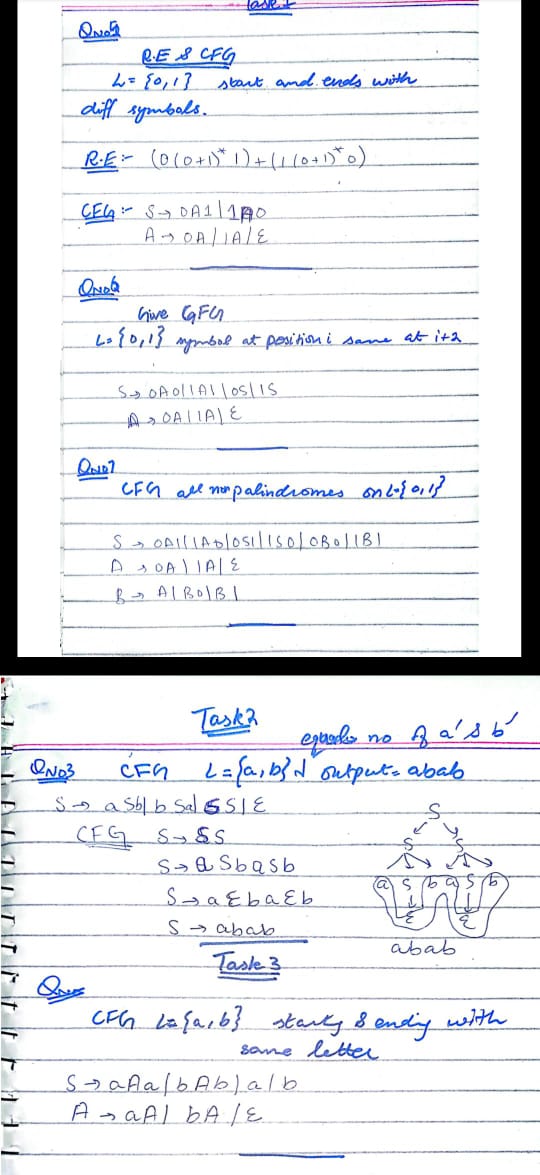 Task 1
QNo5
R.E & CFG
L= {0,1} start and ends with
diff symbols.
R.E:- (0(0+1)* 1)+(1(0+1)* 0)
CFG:- S→ 0A1|1A0
A→ 0A|1A|ε
QNo6
Give CFG
L={0,1} symbol at position i same at i+2
S→ 0A0|1A1|0S|1S
A→ 0A|1A|ε
QNo7
CFG all non palindromes on L={0,1}
S→ 0A1|1A0|0S1|1S0|0B0|1B1
A→ 0A|1A|ε
B→ A|B0|B1
Task2
equal no of a's & b's
QNo3 CFG L={a,b} output= abab
S→ aSb|bSa|SS|ε
CFG S→ SS
S→ aSbaSb
S→ aεbaεb
S→ abab
S
S S
a S b a S b
ε ε
abab
Task 3
CFG L={a,b} starty & endiy with
same letter
S→ aAa|bAb|a|b
A→ aA| bA|ε